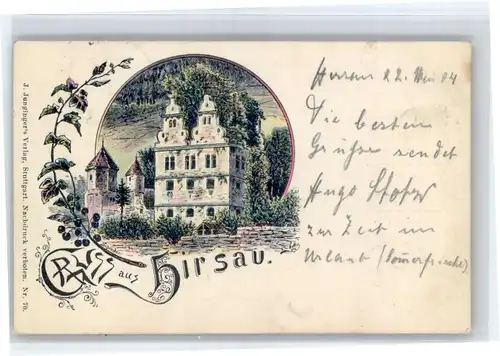 J. Junginger's Verlag, Stuttgart. Nachdruck verboten. Nr. 70.
Gruss aus Hirsau.
Hirsau 22. 04
Die besten
Grüsse sendet
Hugo
zur Zeit in
Urlaub (Sommerfrische)